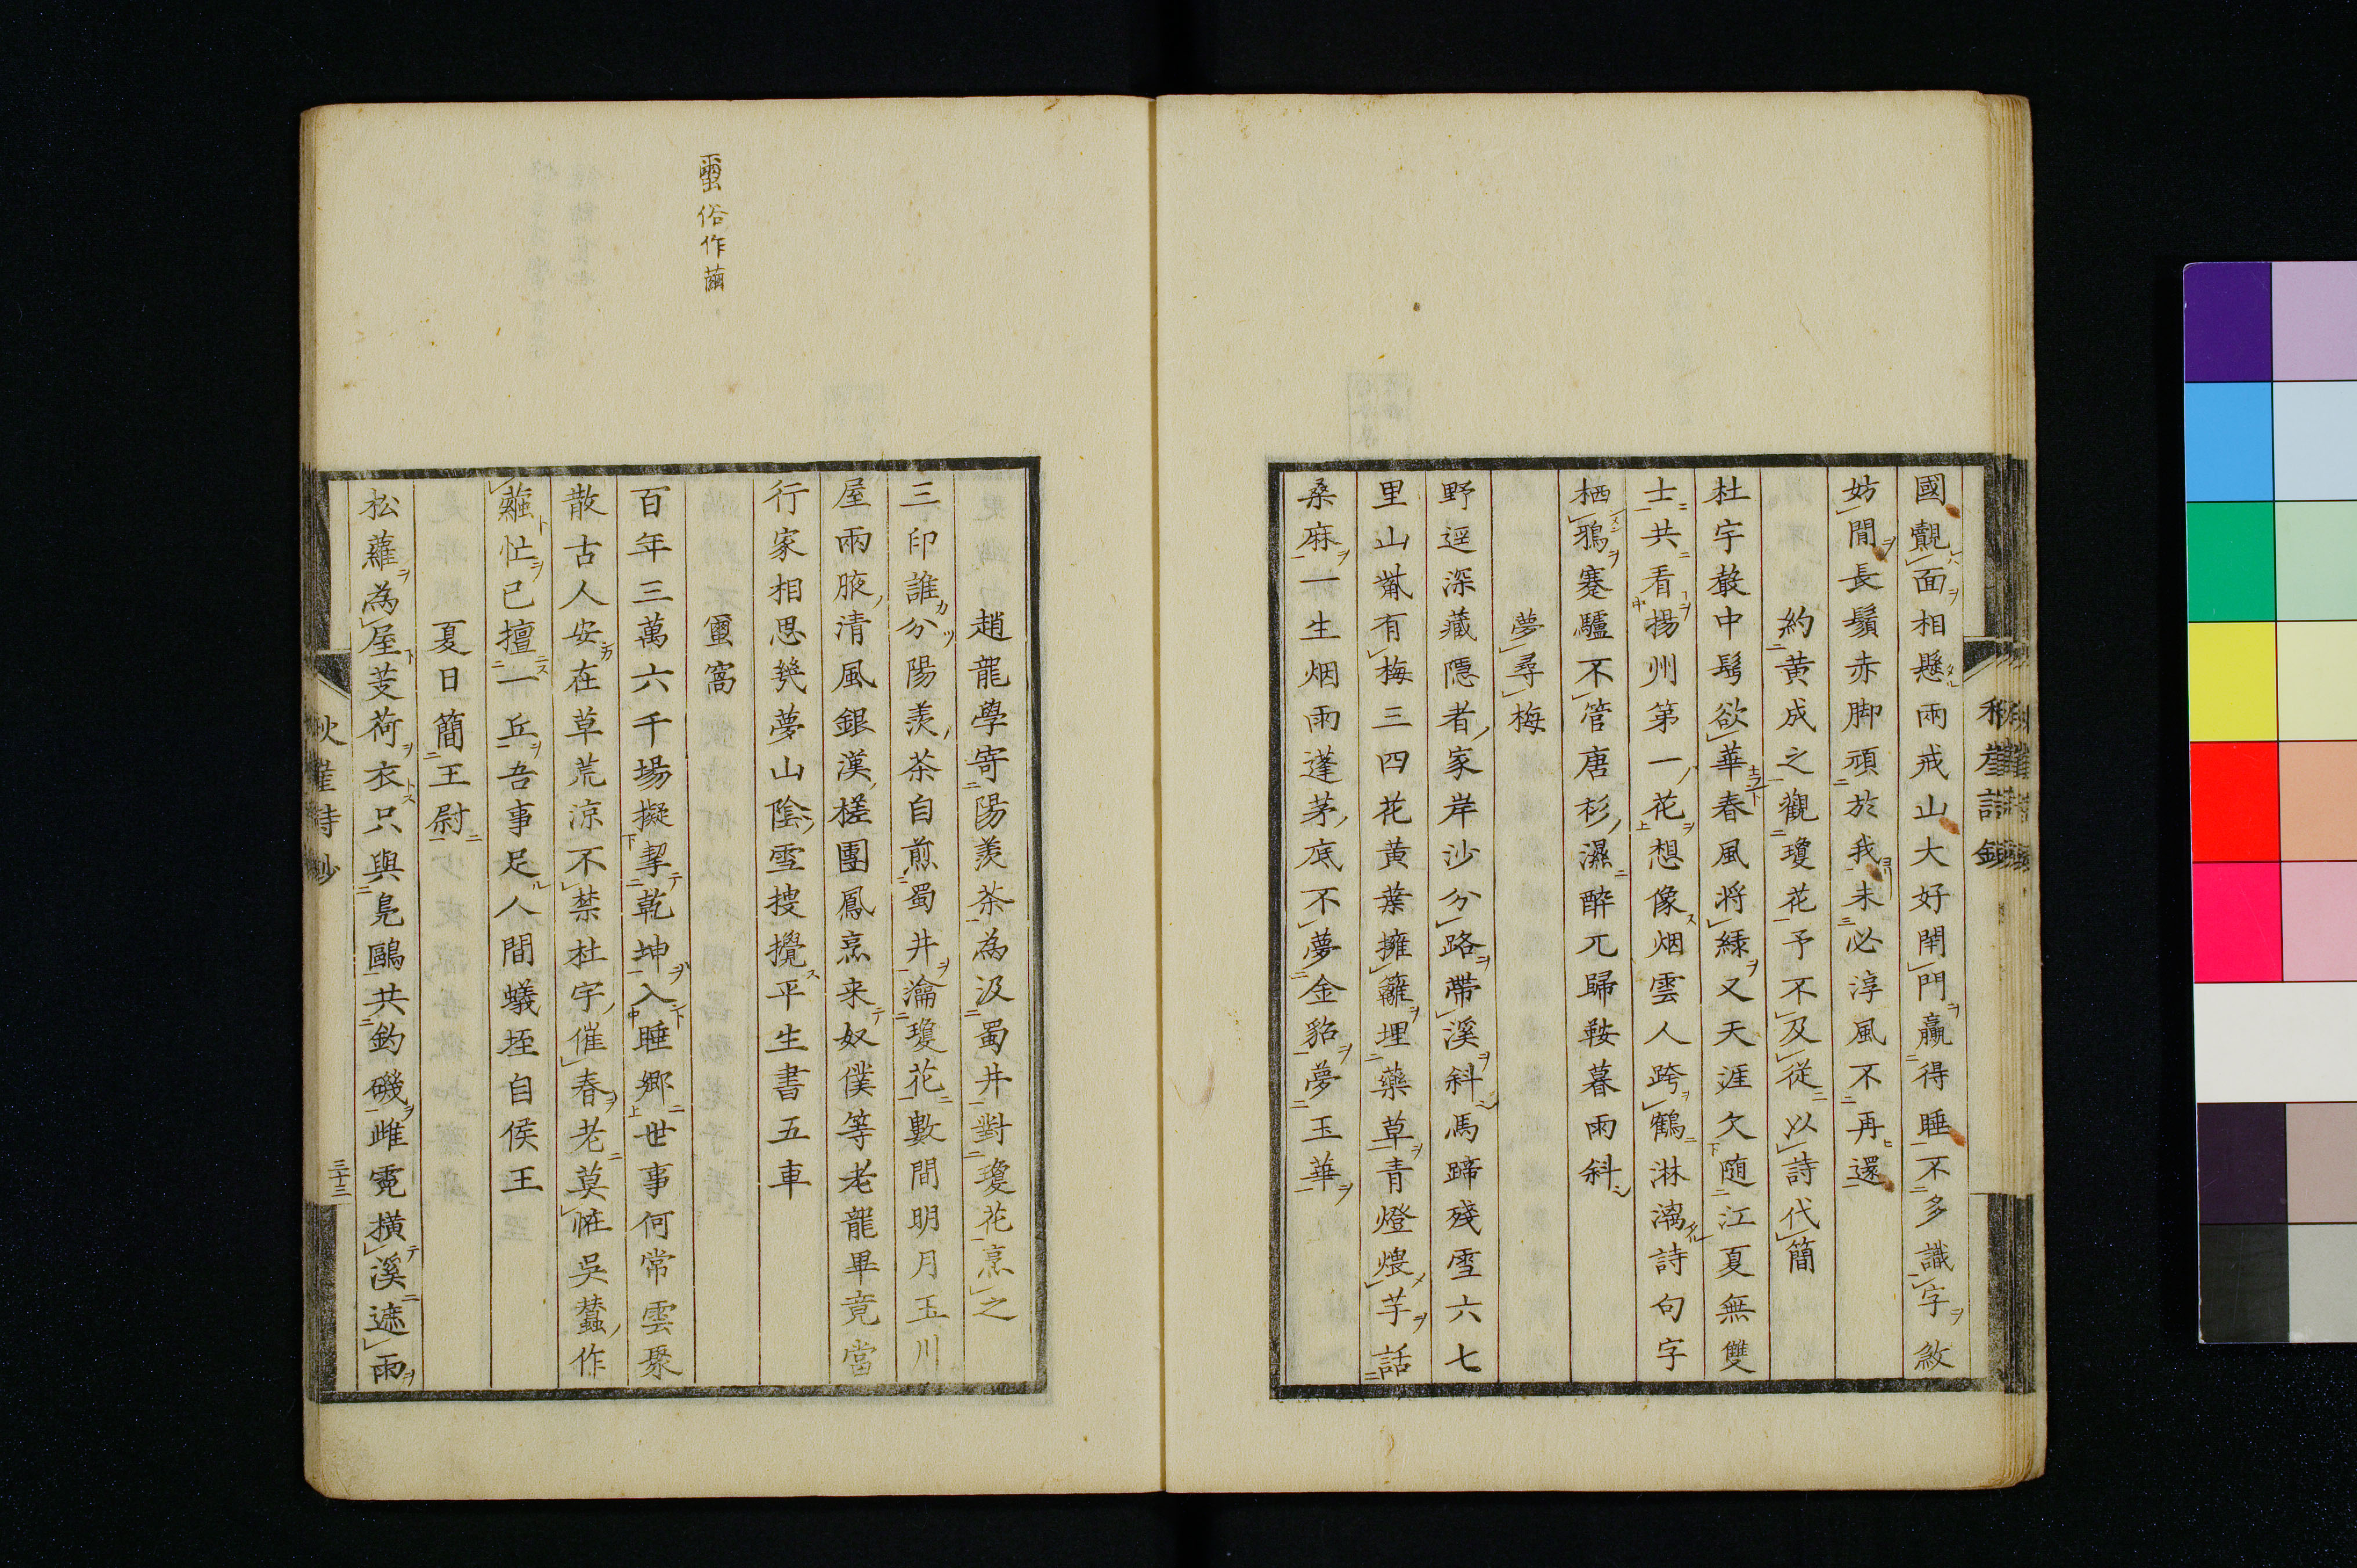 國覿面相懸兩戒山大好閈門贏得睡不多識字敘
妨閒長鬚赤脚頑於我未必淳風不再還
約黃成之觀瓊花予不及從以詩代簡
杜宇聲中髩欲華春風將緑又天涯欠随江夏無雙
士共看揚州第一花想像烟雲人跨鶴淋漓詩句字
栖鴉蹇驢不管唐杉濕醉兀歸鞍暮雨斜
夢尋梅
野逕深藏隱者家岸沙分路帶溪斜馬蹄殘雪六七
里山觜有梅三四花黃葉擁籬埋藥草青燈煨芋話
桒麻一生烟雨蓬茅底不夢金貂夢玉華
趙龍學寄陽羨茶為汲蜀井對瓊花烹之
三印誰分陽羨茶自煎蜀井瀹瓊花數間明月玉川
屋兩腋清風銀漢槎團鳳烹来奴僕等老龍畢竟當
行家相思㡬夢山陰雪搜攪平生書五車
蠒窩
百年三萬六千場擬挈乾坤入睡郷世事何常雲聚
散古人安在草荒涼不禁杜宇催春老莫恠吳蠶作
繭忙已擅一丘吾事足人間蟻垤自侯王
夏日簡王尉
松蘿為屋芰荷衣只與鳬鷗共釣磯雌霓橫溪遮雨
蠒俗作繭
秋崖詩鈔
三十三